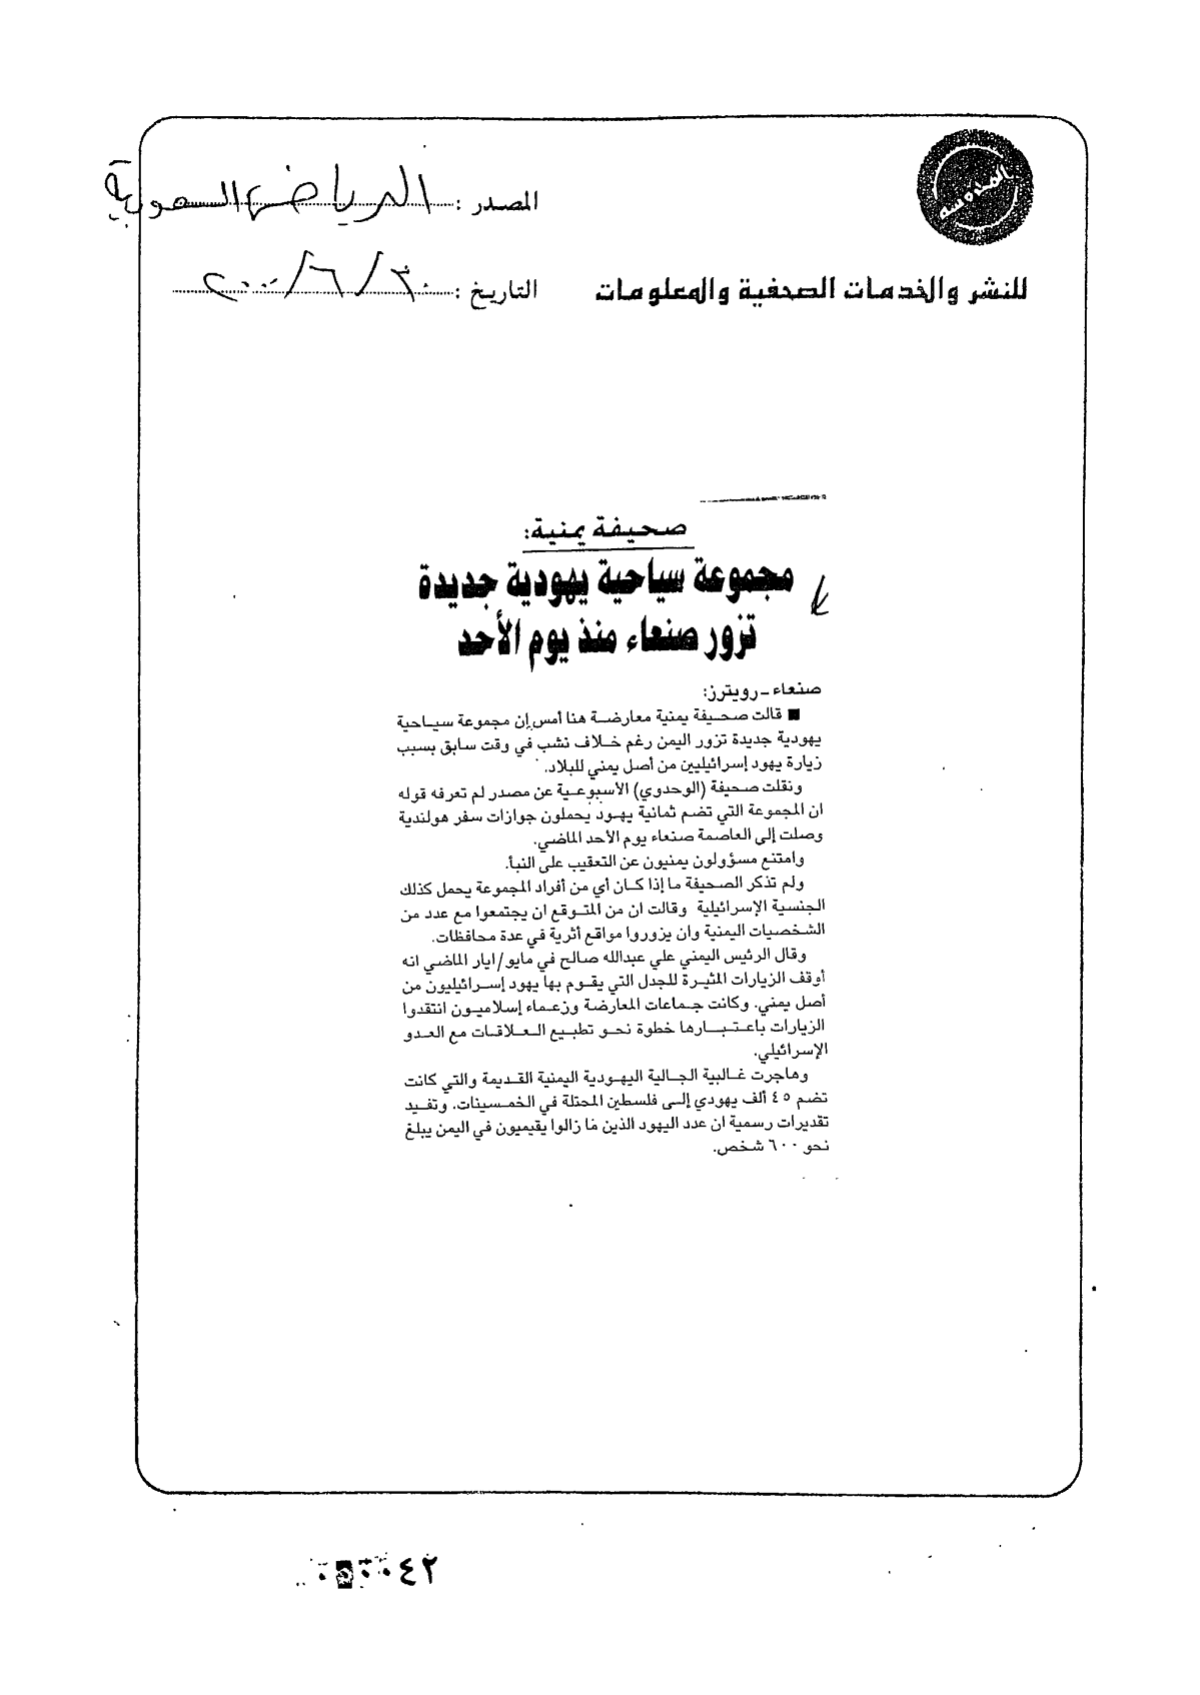 المصدر : الرياض السعودية
للنشر والخدمات الصحفية والمعلومات
التاريخ : ٣٠/٦/٢٠٠٠
صحيفة يمنية:
مجموعة سياحية يهودية جديدة
تزور صنعاء منذ يوم الأحد
صنعاء - رويترز:
■ قالت صحيفة يمنية معارضة هنا أمس إن مجموعة سياحية
يهودية جديدة تزور اليمن رغم خلاف نشب في وقت سابق بسبب
زيارة يهود إسرائيليين من أصل يمني للبلاد.
ونقلت صحيفة (الوحدوي) الأسبوعية عن مصدر لم تعرفه قوله
ان المجموعة التي تضم ثمانية يهود يحملون جوازات سفر هولندية
وصلت إلى العاصمة صنعاء يوم الأحد الماضي.
وامتنع مسؤولون يمنيون عن التعقيب على النبأ.
ولم تذكر الصحيفة ما إذا كان أي من أفراد المجموعة يحمل كذلك
الجنسية الإسرائيلية وقالت ان من المتوقع ان يجتمعوا مع عدد من
الشخصيات اليمنية وان يزوروا مواقع أثرية في عدة محافظات.
وقال الرئيس اليمني علي عبدالله صالح في مايو/ايار الماضي انه
أوقف الزيارات المثيرة للجدل التي يقوم بها يهود إسرائيليون من
أصل يمني. وكانت جماعات المعارضة وزعماء إسلاميون انتقدوا
الزيارات باعتبارها خطوة نحو تطبيع العلاقات مع العدو
الإسرائيلي.
وهاجرت غالبية الجالية اليهودية اليمنية القديمة والتي كانت
تضم ٤٥ ألف يهودي إلى فلسطين المحتلة في الخمسينات. وتفيد
تقديرات رسمية ان عدد اليهود الذين ما زالوا يقيميون في اليمن يبلغ
نحو ٦٠٠ شخص.